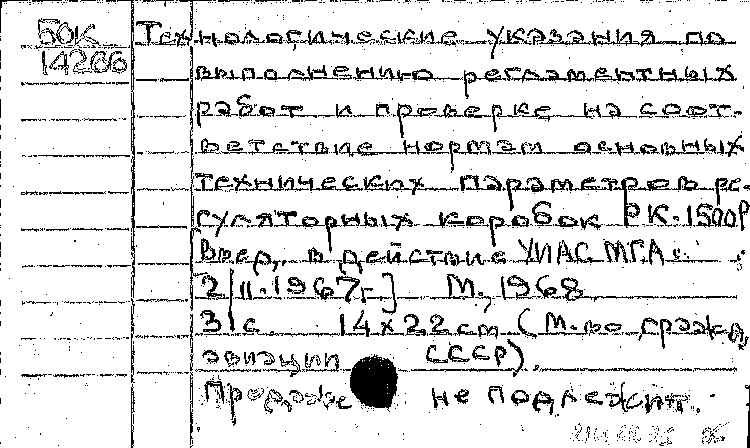 50К Технологические указания по
14266 выполнению регламентных
работ и проверке на соот-
ветствие нормам основных
технических параметров ре-
гуляторных коробок РК-1500Р
[Введ. в действие УИАС МГА
2/II.1967г.] М., 1968.
31с. 14×22см (М-во гражд.
авиации СССР).
Продаже не подлежит.